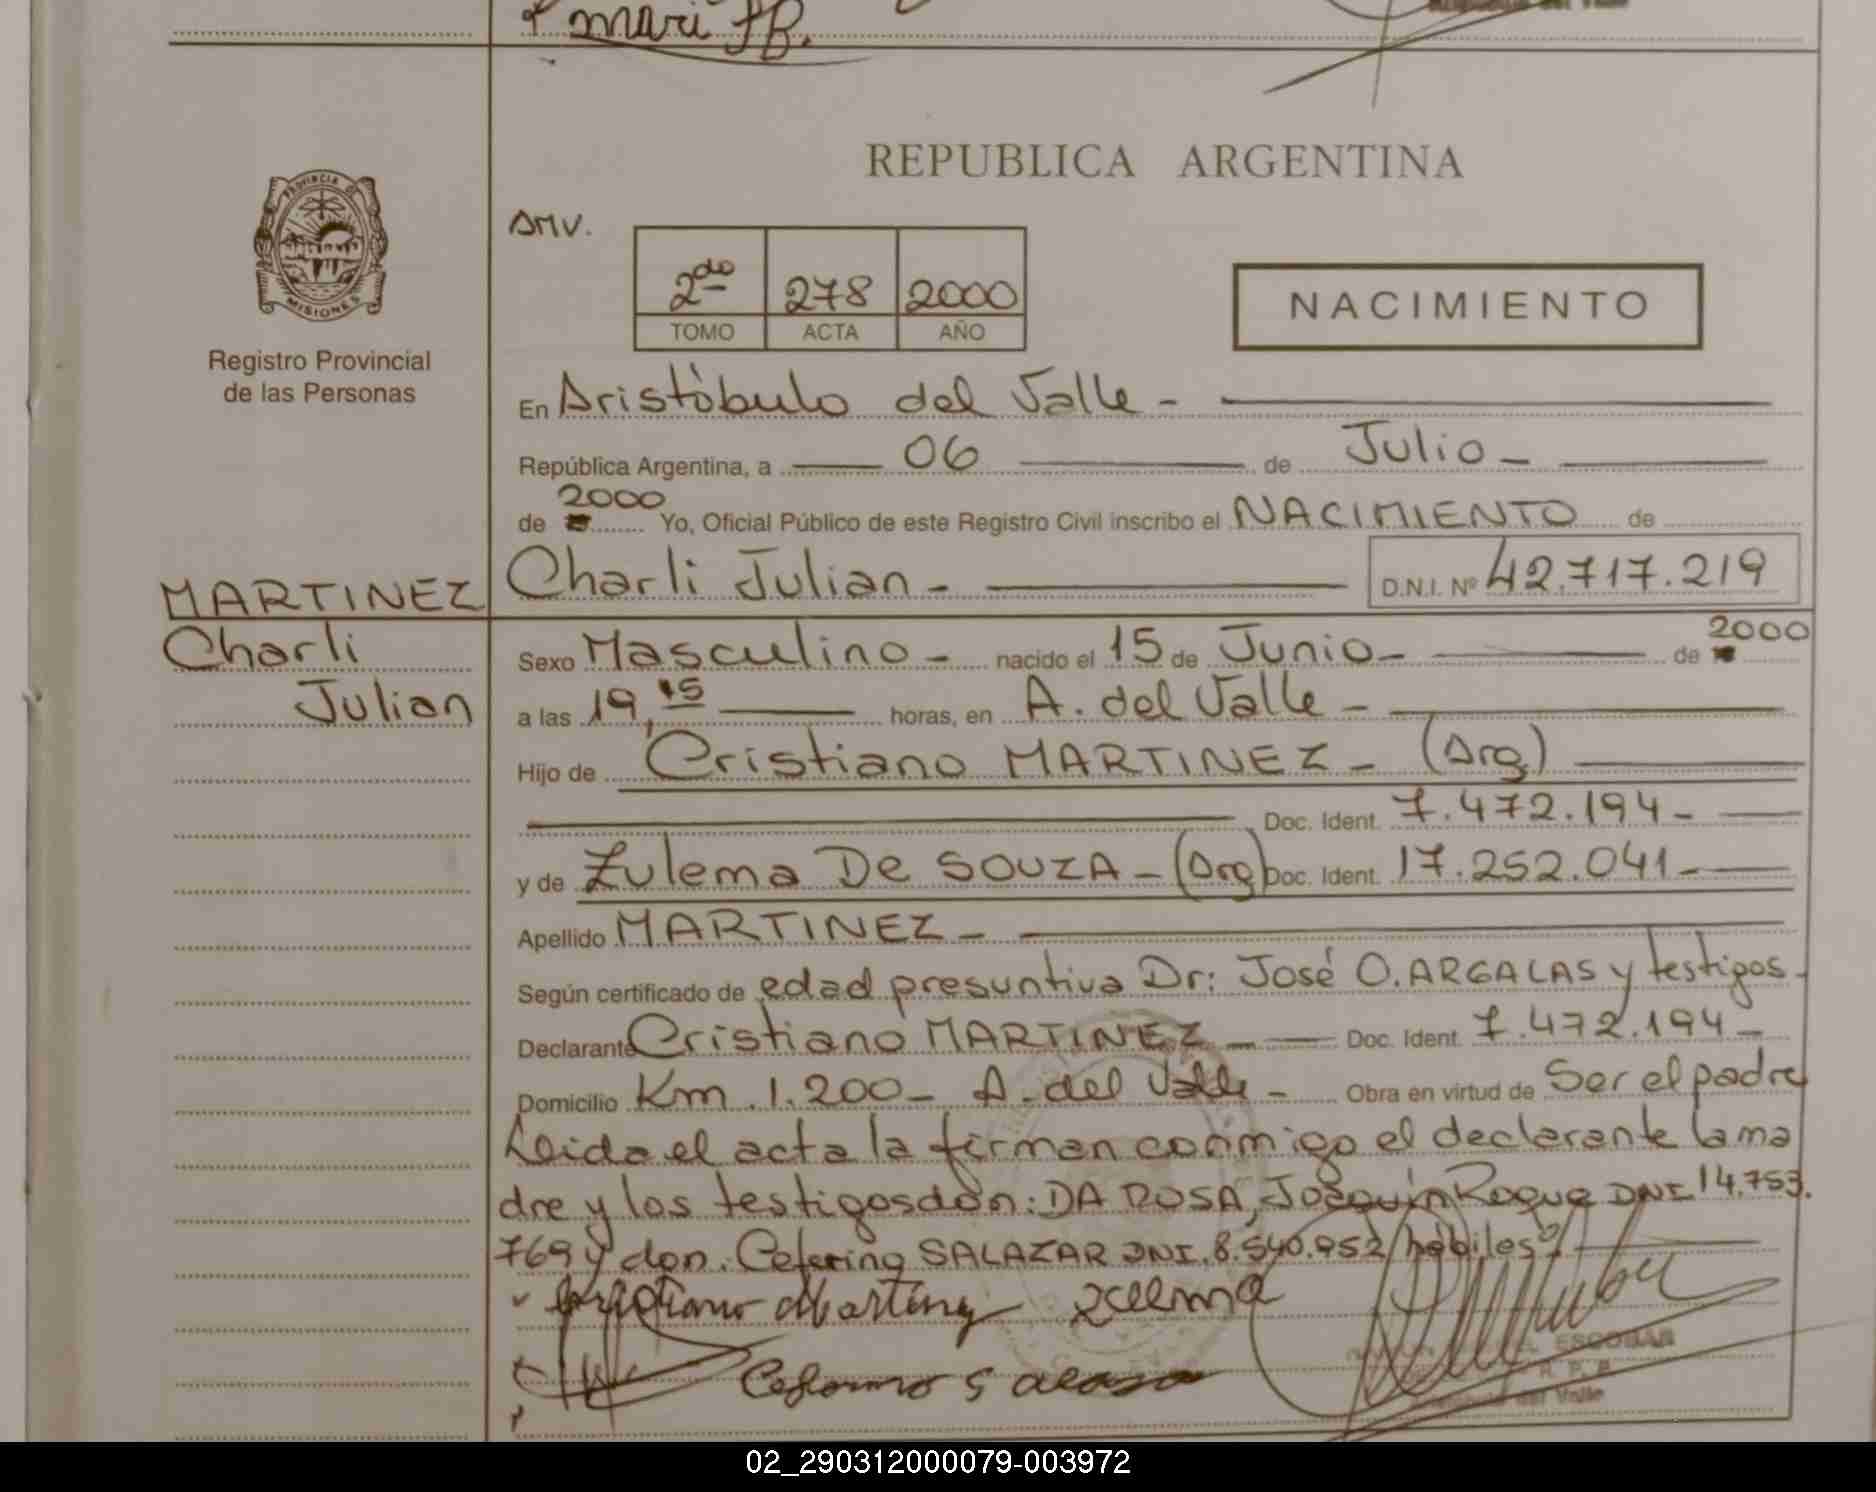 mari
REPUBLICA ARGENTINA
PROVINCIA DE
MISIONES
Registro Provincial
de las Personas
AMV.
2do 278 2000
TOMO ACTA AÑO
NACIMIENTO
En Aristóbulo del Valle -
República Argentina, a 06 de Julio -
2000
de Yo, Oficial Público de este Registro Civil inscribo el NACIMIENTO de
MARTINEZ Charli Julian - D.N.I. Nº 42.717.219
Charli
Julian
Sexo Masculino - nacido el 15 de Junio - de 2000
a las 19,15 horas, en A. del Valle -
Hijo de Cristiano MARTINEZ - (Arg)
Doc. Ident. 7.472.194 -
y de Zulema De SOUZA - (Arg) Doc. Ident. 17.252.041 -
Apellido MARTINEZ -
Según certificado de edad presuntiva Dr: José O. ARGALAS y testigos -
Declarante Cristiano MARTINEZ - Doc. Ident. 7.472.194 -
Domicilio Km. 1.200 - A. del Valle - Obra en virtud de Ser el padre
Leida el acta la firman conmigo el declarante la ma
dre y los testigos don: DA ROSA, Joaquín Roque DNI 14.753.
769 y don. Ceferino SALAZAR DNI. 8.540.952 habiles
ESCOBAR
R. P. P.
del Valle
02_290312000079-003972